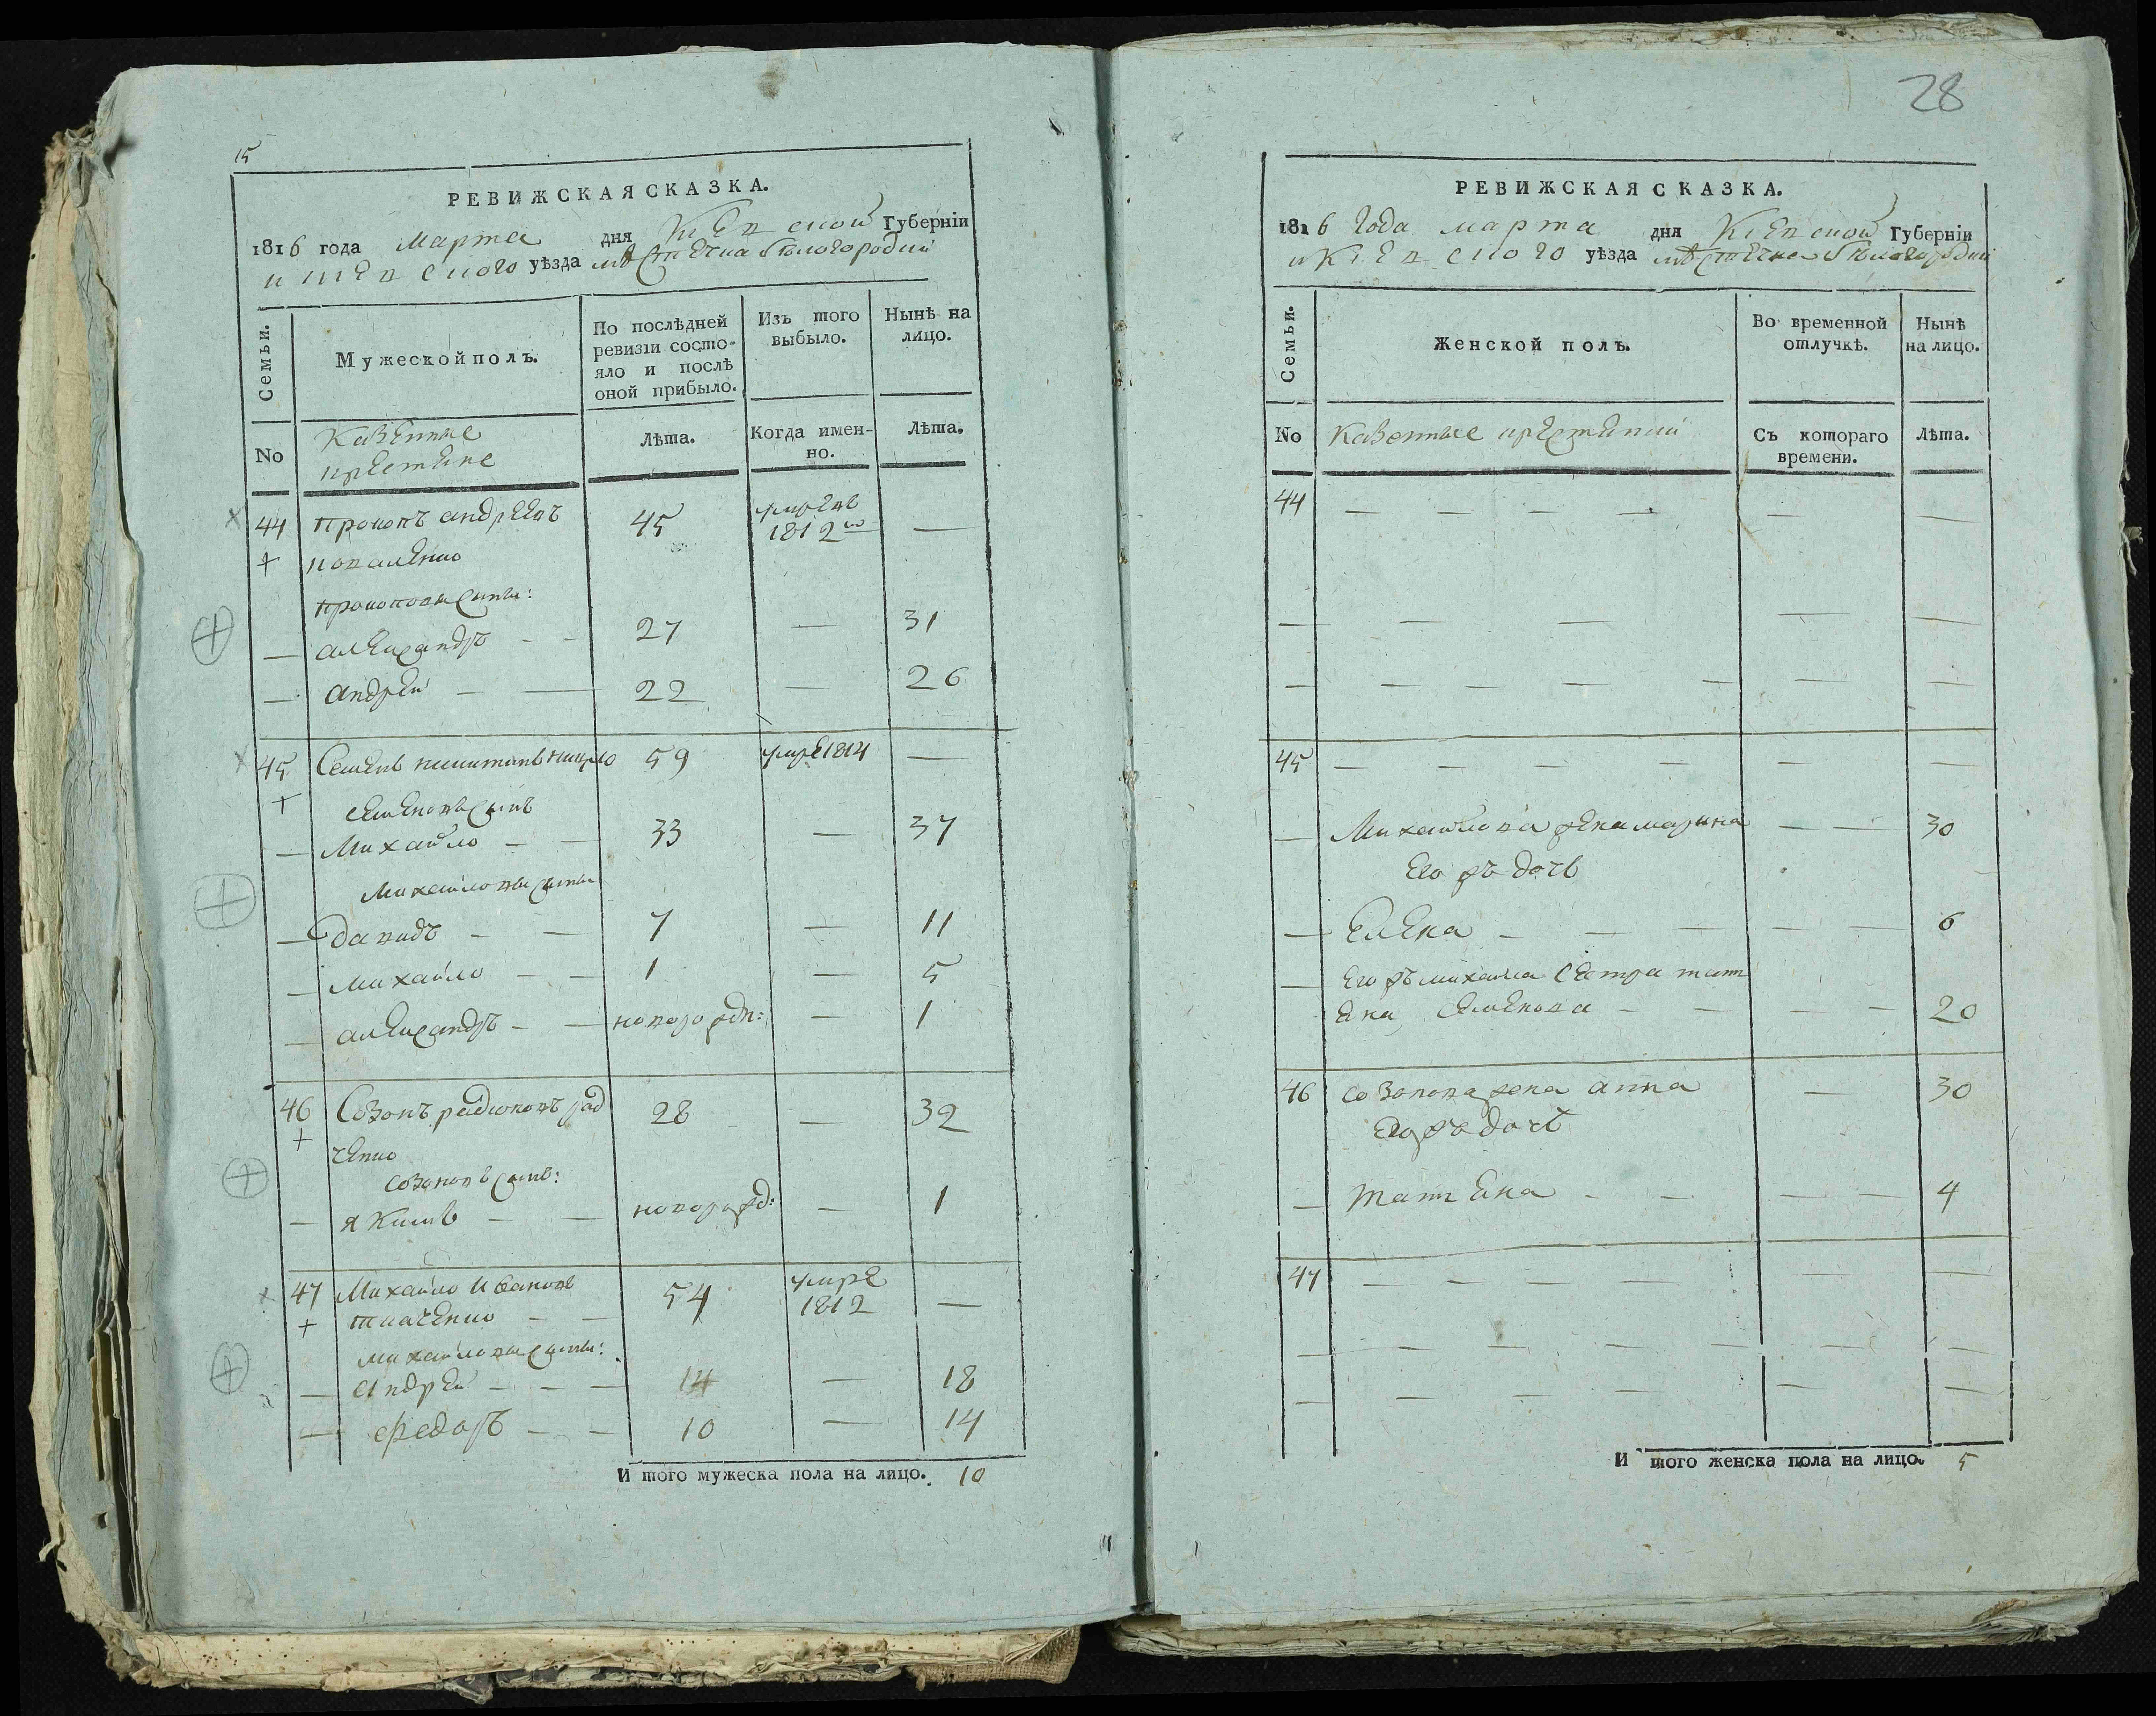 15
РЕВИЖСКАЯ СКАЗКА.
1816 года марта дня Кіевской Губерніи
и Кіевского уѣзда мѣстечка Бѣлогородки
Семьи.
Мужеской полъ.
По послѣдней ревизіи состо-
яло и послѣ
оной прибыло.
Изъ того
выбыло.
Нынѣ на
лицо.
No
Казенные
крестяне
Лѣта.
Когда имен-
но.
Лѣта.
44 Прокопъ андреевъ 45 умре въ 1812м —
коваленко
прокоповы сыны:
— александръ — — 27 — 31
— андрей — — 22 — 26
45 Семенъ никитинъ 59 умре 1814 —
семеновъ сынъ
— Михайло — — 33 — 37
Михайловы сыны
— Давидъ — — 7 — 11
— михайло — — 1 — 5
— александръ — — новорождн: — 1
46 Созонъ радионовъ рад 28 — 32
ченко
созоновъ сынъ:
— якимъ — — новорожд: — 1
47 Михайло Ивановъ 54 умре 1812 —
ткаченко — —
михайловы сыны:
— андрей — — — 14 — 18
— федоръ — — 10 — 14
И того мужеска пола на лицо. 10
28
РЕВИЖСКАЯ СКАЗКА.
1816 года марта дня Кіевской Губерніи
и Кіевского уѣзда мѣстечка Бѣлогородки
Семьи.
Женской полъ.
Во временной
отлучкѣ.
Нынѣ
на лицо.
No
Казенные крестянки
Съ котораго
времени.
Лѣта.
44 — — — — — —
— — — — —
— — — — — — —
45 — — — — — —
— Михайлова жена марина — — 30
Его жъ дочь
— Елена — — — — — 6
— Его жъ михайла сестра тати
яна семенова — — — — 20
46 созонова жена анна — 30
Его жъ дочь
— татияна — — — — 4
47 — — — — — —
— — — — — — —
— — — — — —
И того женска пола на лицо. 5